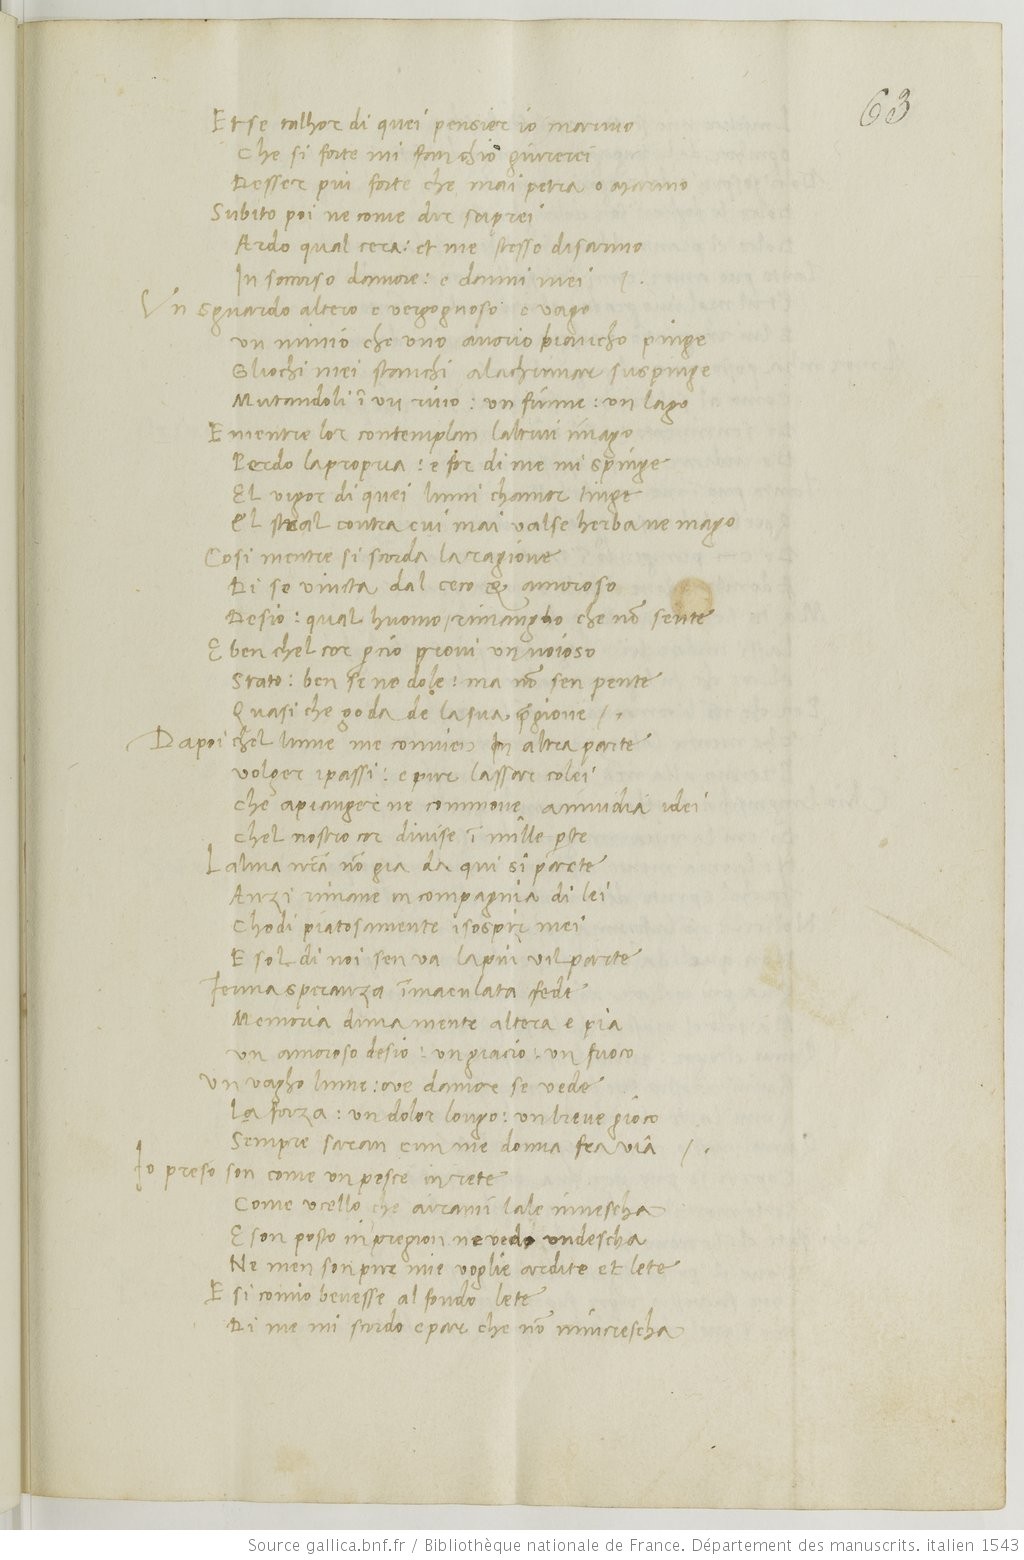 63
Et se talhor di quei pensier io m armo
Che si forte mi fan chio giurerei
Desser piu forte che mai petra o marmo
Subito poi ne come dir saprei
Ardo qual cera: et me stesso disarmo
In soccorso damore: e danni mei /.
Un sguardo altero e vergognoso e vago
un minio che uno auorio biancho pinge
Gliochi mei stanchi a lachrimar suspinge
Mutandoli ī un riuo: un fiume: un lago
E mentre lor contemplan laltrui imago
Perdo la propria: e for di me mi spinge
El vigor di quei lumi chamor tinge
El stral contra cui mai valse herba ne mago
Cosi mentre si scorda la ragione
Di se vincta dal ceco & amoroso
Desio: qual huomo rimangho che nō sente
E ben chel cor ꝑcio proui un noioso
Stato: ben se ne dole: ma nō sen pente
Quasi che goda de la sua p̄gione /.
Dapoi chel lume me conuien In altra parte
volger i passi: e pur lassar colei
che a pianger ne commoue a inuidia idei
chel nostro cor diuise ī mille ꝑte
Lalma nr̄a nō gia da qui si parte
Anzi rimane in compagnia di lei
Chodi piatosamente i sospir mei
E sol di noi sen va la piu vil parte
Ferma speranza īmaculata fede
Memoria diua mente altera e pia
un amoroso desio: un giacio: un fuoco
Un vagho lume: oue damore se vede
La forza: un dolor longo: un breue gioco
Sempre saran cun me donna fra via /.
Io preso son come un pesce in rete
Come vcello che airami lale inuescha
E son posto in pregion ne vedo undescha
Ne men son pur mie voglie ardite et lete
E si comio beuesse al fondo lete
Di me mi scordo e par che nō mincrescha
Source gallica.bnf.fr / Bibliothèque nationale de France. Département des manuscrits. italien 1543